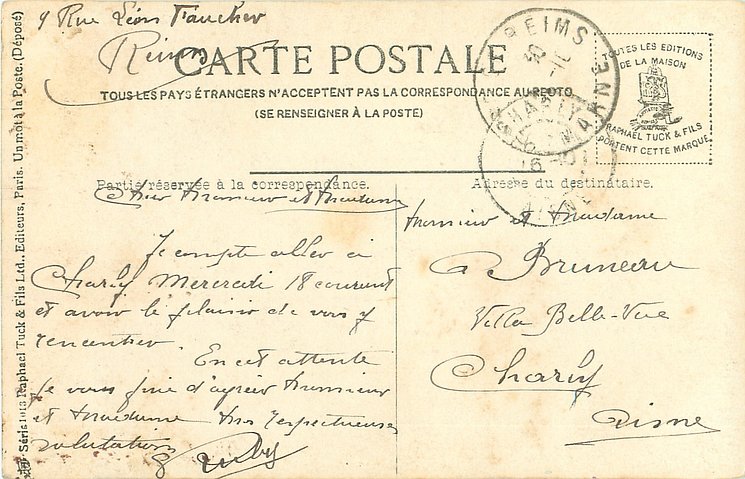 9 Rue Léon Faucher
Reims
CARTE POSTALE
TOUS LES PAYS ÉTRANGERS N'ACCEPTENT PAS LA CORRESPONDANCE AU RECTO
(SE RENSEIGNER À LA POSTE)
REIMS
MARNE
CHARLY
AISNE
TOUTES LES EDITIONS
DE LA MAISON
RAPHAEL TUCK & FILS
PORTENT CETTE MARQUE
Partie réservée à la correspondance.
Adresse du destinataire.
Cher Monsieur et Madame
Je compte aller à
Charly Mercredi 18 courant
et avoir le plaisir de vous y
rencontrer.
En cet attente
je vous prie d'agréer Monsieur
et Madame mes respectueuses
salutations
Monsieur et Madame
Bruneau
Villa Belle-Vue
Charly
Aisne
Série 1013 Raphael Tuck & Fils Ltd., Editeurs, Paris. Un mot à la Poste. (Déposé)